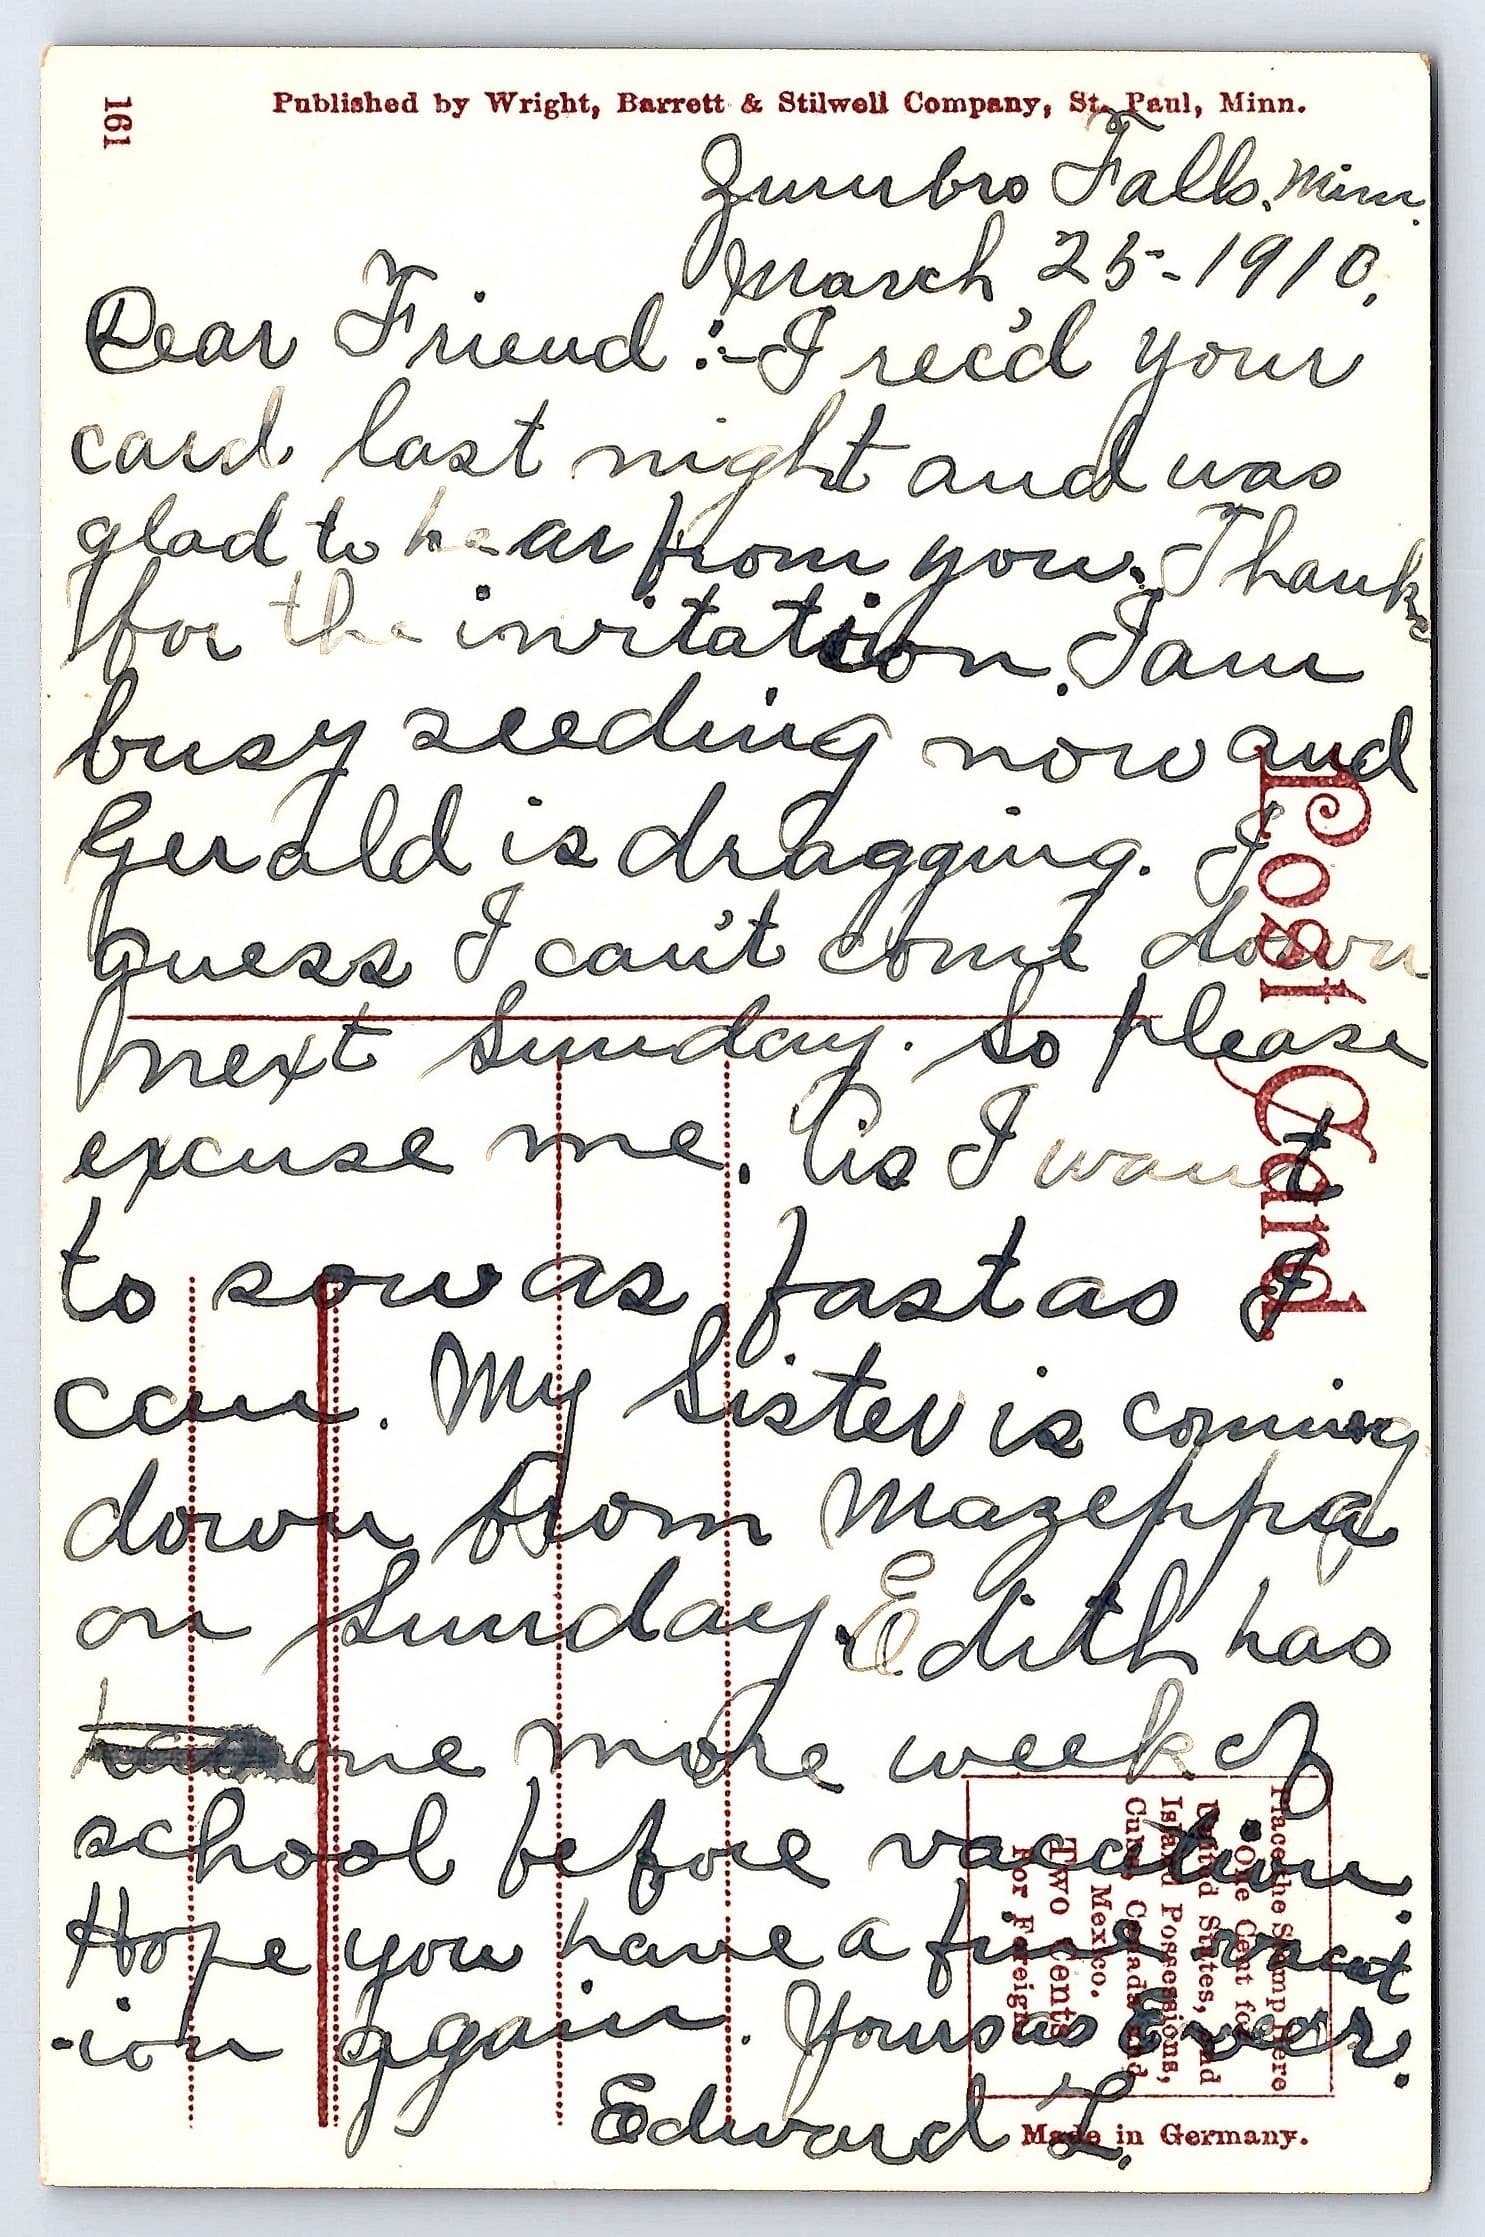 161
Published by Wright, Barrett & Stilwell Company, St. Paul, Minn.
Zumbro Falls, Minn.
March 25-1910.
Dear Friend:-I rec'd your
card last night and was
glad to hear from you. Thanks
for the invitation. I am
busy seeding now and
Gerald is dragging. I
guess I can't come down
next Sunday. So please
excuse me. As I want
to sow as fast as I
can. My Sister is coming
down from Mazeppa
on Sunday. Edith has
one more week of
school before vacation.
Hope you have a fine vacat
-ion again. Yours as Ever.
Edward L.
Post Card.
Place the Stamp Here
One Cent for
United States, and
Island Possessions,
Cuba, Canada and
Mexico.
Two Cents
For Foreign
Made in Germany.